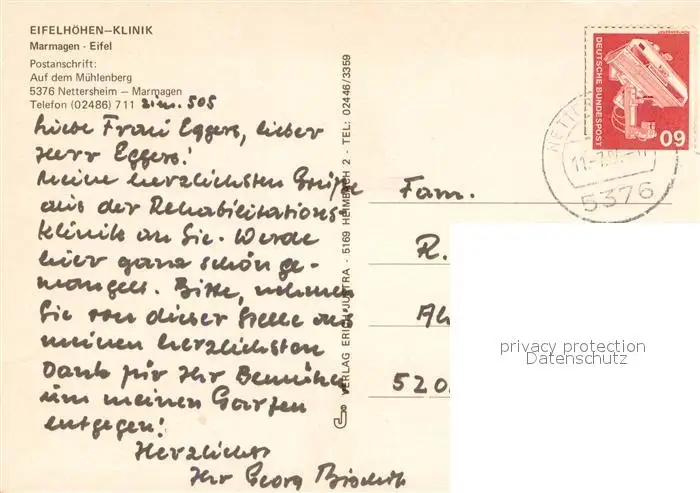 EIFELHÖHEN–KLINIK
Marmagen - Eifel
Postanschrift:
Auf dem Mühlenberg
5376 Nettersheim – Marmagen
Telefon (02486) 711 Zim. 505
Liebe Frau Eggers, lieber
Herr Eggers!
Meine herzlichsten Grüße
aus der Rehabilitations-
klinik an Sie. Werde
hier ganz schön ge-
mangelt. Bitte, nehmen
Sie von dieser Stelle aus
meinen herzlichsten
Dank für Ihr Bemühen
um meinen Garten
entgegen!
Herzlichst
Ihr Georg
VERLAG ERICH JUSTRA - 5169 HEIMBACH 2 - TEL: 02446/3359
DEUTSCHE BUNDESPOST
60
5376
Fam.
R.
520
privacy protection
Datenschutz